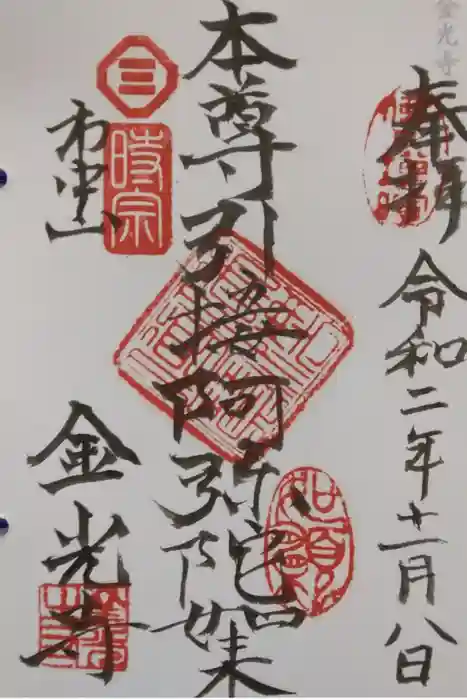 金光寺
奉拝
令和二年十一月八日
本尊引接阿弥陀如来
市中山
時宗
三
金光寺